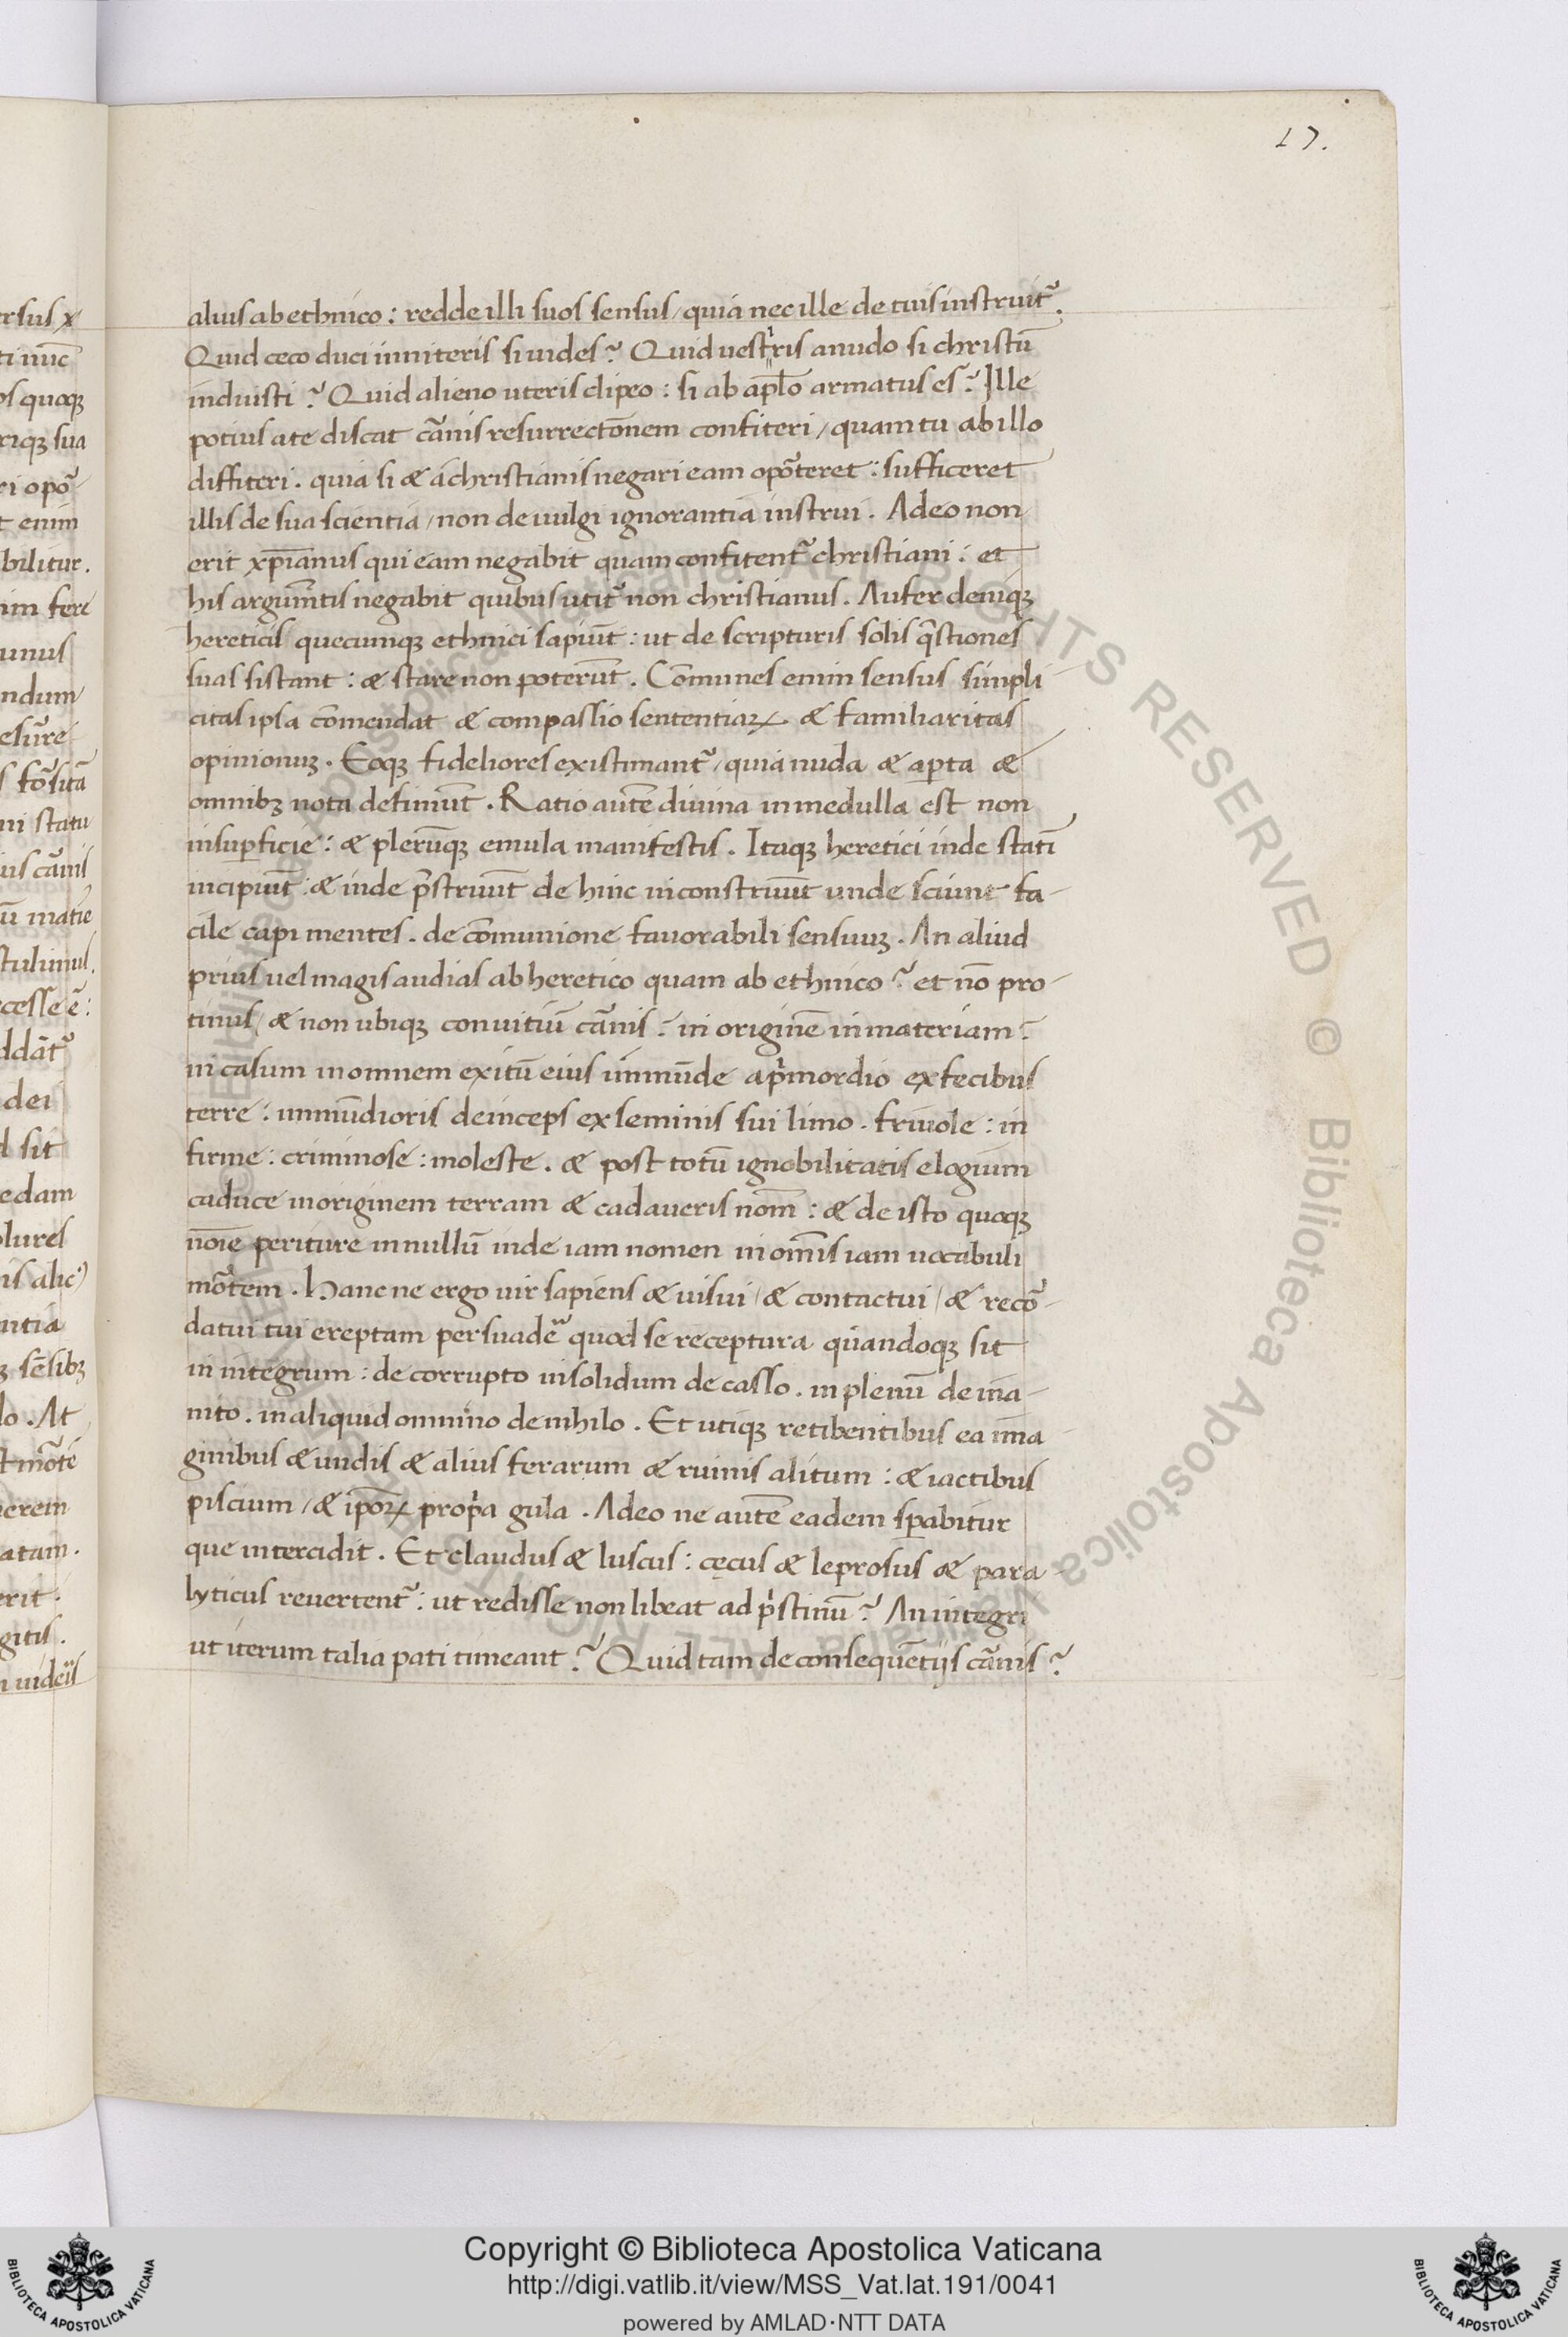 17.
aliusabethnico: redde illi suos sensus/quia nec ille de tuis instruit᷑.
Quid ceco duci inniteris si uides? Quid uestr̍ris anudo si christū
induisti? Quid alieno uteris clipeo: si ab apl̄o armatus es? Ille
potius ate discat cãnis resurrectōnem confiteri/quam tu ab illo
diffiteri. quia si & achristianis negari eam opõteret: sufficeret
illis de sua scientia/non de uulgi ignorantia instrui. Adeo non
erit xp̄ianus qui eam negabit quam confitent᷑ christiani: et
his argum̄tis negabit quibus utit᷑ non christianus. Aufer deniqꝫ
hereticis quecumqꝫ ethnici sapiūt: ut de scripturis solis q̄stiones
suas sistant: & stare non poterūt. Cōmunes enim sensus simpli
citas ipsa cōmendat & compassio sententiaꝝ & familiaritas
opinionuꝫ. Eoqꝫ fideliores existimant᷑/quia nuda & aꝑta &
omnibꝫ nota definiūt. Ratio autē diuina inmedulla est non
insuꝑficie: & plerūqꝫ emula manifestis. Itaqꝫ heretici inde statī
incipiūt: & inde p̄struūt de hinc inconstruūt unde sciunt fa-
cile capi mentes. de cōmunione fauorabili sensuuꝫ. An aliud
prius uel magis audias ab heretico quam ab ethnico? et nō pro-
tinus/& non ubiqꝫ conuitiū cãnis? in originē inmateriam?
in casum inomnem exitū eius immūde apͥmordio exfecibus
terre: immūdioris deinceps ex seminis sui limo. friuole: in
firme: criminose: moleste. & post totū ignobilitatis elogium
caduce inoriginem terram & cadaueris nom̄: & de isto quoqꝫ
noīe periture innullū inde iam nomen in om̄is iam uocabuli
mõtem. Hanc ne ergo uir sapiens & uisui/& contactui/& recõ-
datui tui ereptam persuadē quod se receptura quandoqꝫ sit
in integrum: de corrupto insolidum de casso. inplenū de ina-
nito. inaliquid omnino denihilo. Et utiqꝫ retibentibus ea ima
ginibus & undis & alius ferarum & ruinis alitum: & iactibus
piscium/& ip̄oꝝ propͥa gula. Adeo ne autē eadem sꝑabitur
que intercidit. Et claudus & luscus: cęcus & leprosus & para-
lyticus reuertent᷑: ut redisse non libeat ad pͥstinū? An integri
ut iterum talia pati timeant? Quid tam de consequētijs cãnis?
Copyright © Biblioteca Apostolica Vaticana
http://digi.vatlib.it/view/MSS_Vat.lat.191/0041
powered by AMLAD·NTT DATA